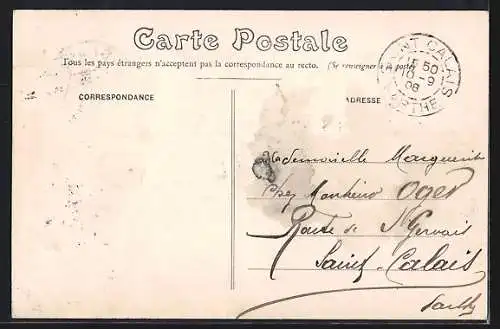 Carte Postale
Tous les pays étrangers n'acceptent pas la correspondance au recto. (Se renseigner à la poste)
SAINT CALAIS
15 50
10 -9
08
SARTHE
CORRESPONDANCE
ADRESSE
Mademoiselle Marguerite
Chez Monsieur Oger
Route de St Gervais
Saint-Calais
Sarthe